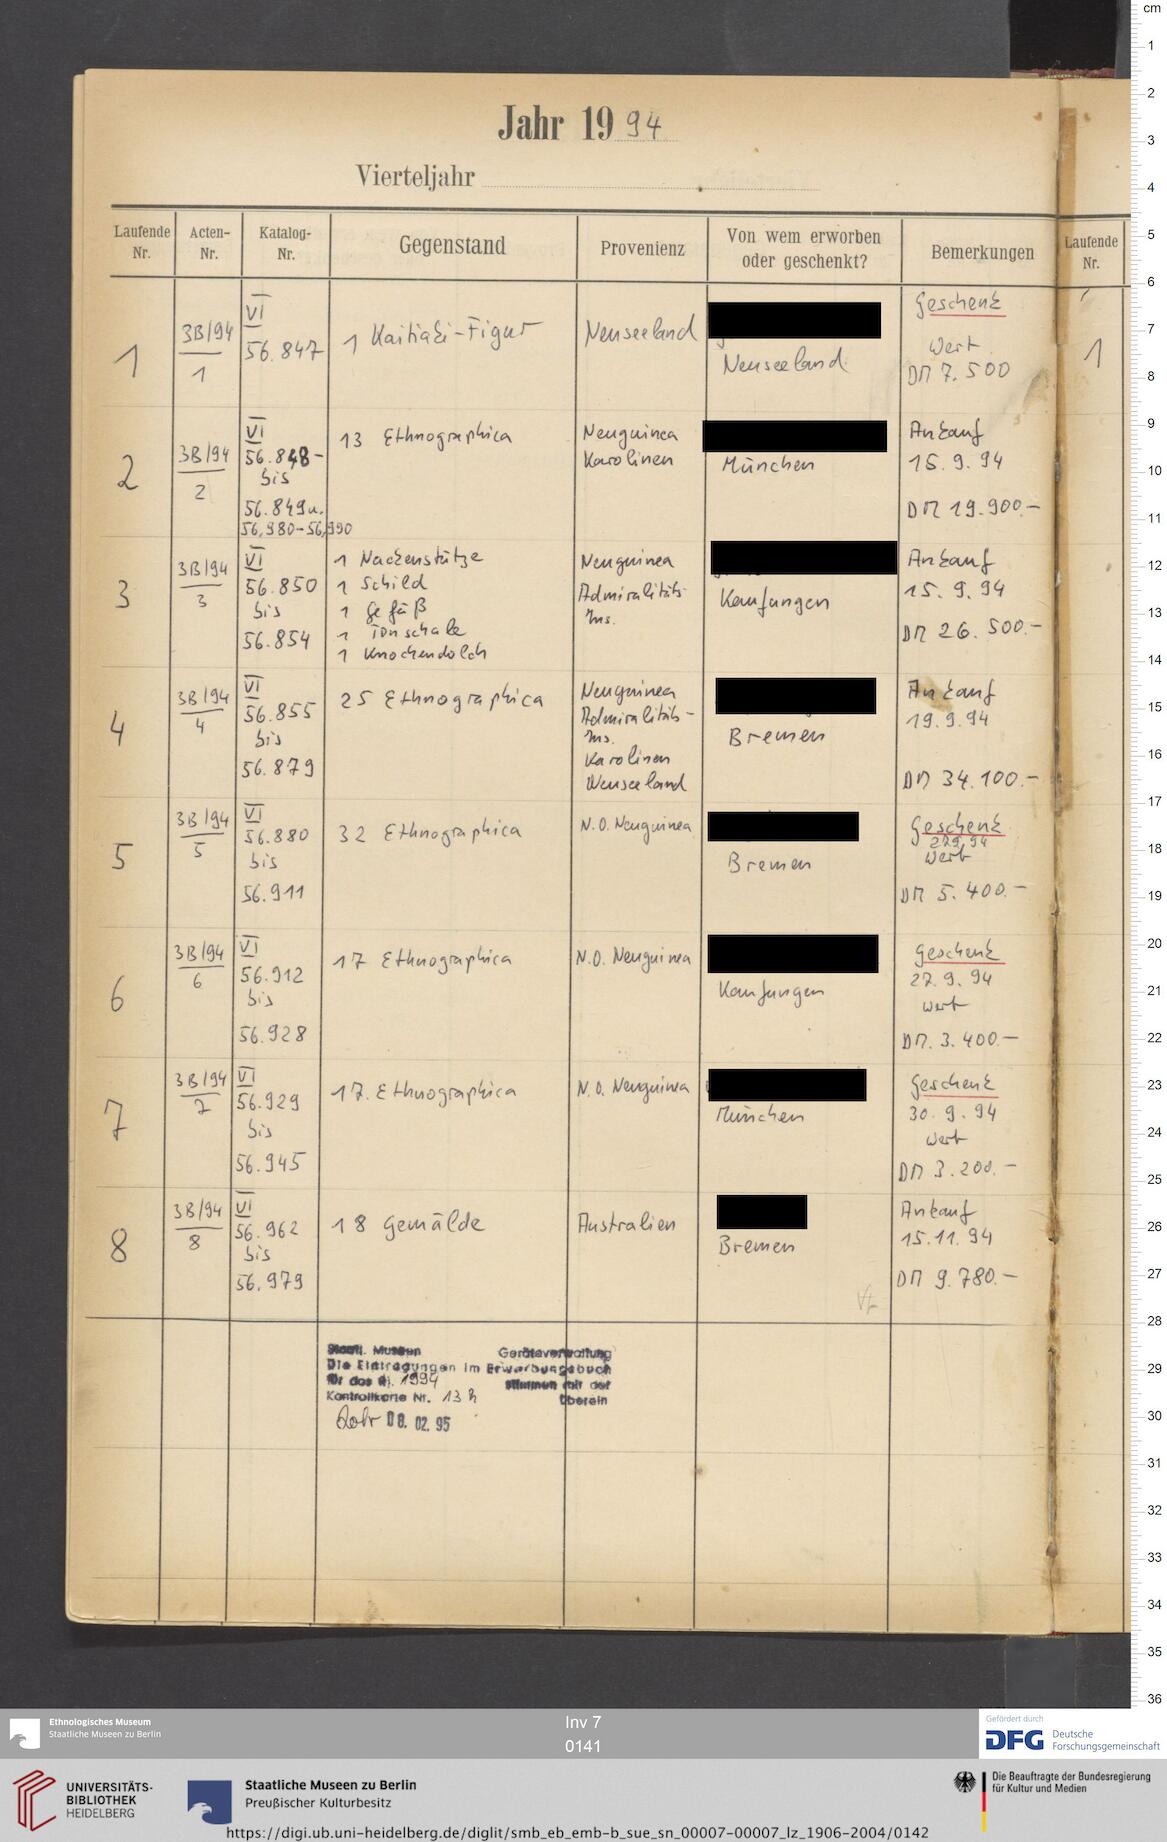 Jahr 1994
Vierteljahr
Laufende Nr.
Acten-Nr.
Katalog-Nr.
Gegenstand
Provenienz
Von wem erworben oder geschenkt?
Bemerkungen
Laufende Nr.
1
3B/94
1
VI
56.847
1 Kaitiaki-Figur
Neuseeland
Neuseeland
Geschenk
Wert
DM 7.500
1
2
3B/94
2
VI
56.848-
bis
56.849 u.
56.980-56.990
13 Ethnographica
Neuguinea
Karolinen
München
Ankauf
15.9.94
DM 19.900.-
3
3B/94
3
VI
56.850
bis
56.854
1 Nackenstütze
1 Schild
1 Gefäß
1 Tonschale
1 Knochendolch
Neuguinea
Admiralitäts-
Ins.
Kaufungen
Ankauf
15.9.94
DM 26.500.-
4
3B/94
4
VI
56.855
bis
56.879
25 Ethnographica
Neuguinea
Admiralitäts-
Ins.
Karolinen
Neuseeland
Bremen
Ankauf
19.9.94
DM 34.100.-
5
3B/94
5
VI
56.880
bis
56.911
32 Ethnographica
N.O. Neuguinea
Bremen
Geschenk
27.9.94
Wert
DM 5.400.-
6
3B/94
6
VI
56.912
bis
56.928
17 Ethnographica
N.O. Neuguinea
Kaufungen
Geschenk
27.9.94
Wert
DM. 3.400.-
7
3B/94
7
VI
56.929
bis
56.945
17. Ethnographica
N.O. Neuguinea
München
Geschenk
30.9.94
Wert
DM 3.200.-
8
3B/94
8
VI
56.962
bis
56.979
18 Gemälde
Australien
Bremen
Ankauf
15.11.94
DM 9.780.-
Staatl. Museen Geräteverwaltung
Die Eintragungen im Erwerbungsbuch
für das Rj. 1994 stimmen mit der
Kontrollkarte Nr. 13 überein
08.02.95
cm
1
2
3
4
5
6
7
8
9
10
11
12
13
14
15
16
17
18
19
20
21
22
23
24
25
26
27
28
29
30
31
32
33
34
35
36
Ethnologisches Museum
Staatliche Museen zu Berlin
Inv 7
0141
Gefördert durch
DFG Deutsche
Forschungsgemeinschaft
UNIVERSITÄTS-
BIBLIOTHEK
HEIDELBERG
Staatliche Museen zu Berlin
Preußischer Kulturbesitz
Die Beauftragte der Bundesregierung
für Kultur und Medien
https://digi.ub.uni-heidelberg.de/diglit/smb_eb_emb-b_sue_sn_00007-00007_lz_1906-2004/0142